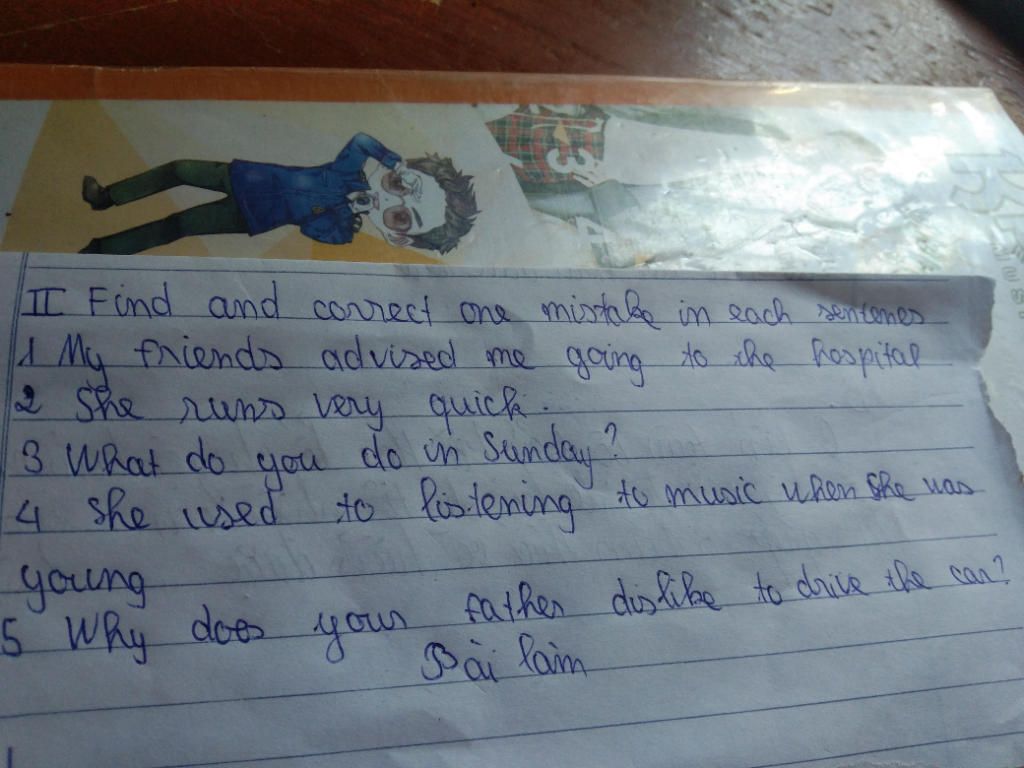 II Find and correct one mistake in each sentenes
1 My friends advised me going to the hospital
2 She runs very quick.
3 What do you do in Sunday?
4 She used to listening to music when she was
young
5 Why does your father dislike to drive the car?
Bài làm